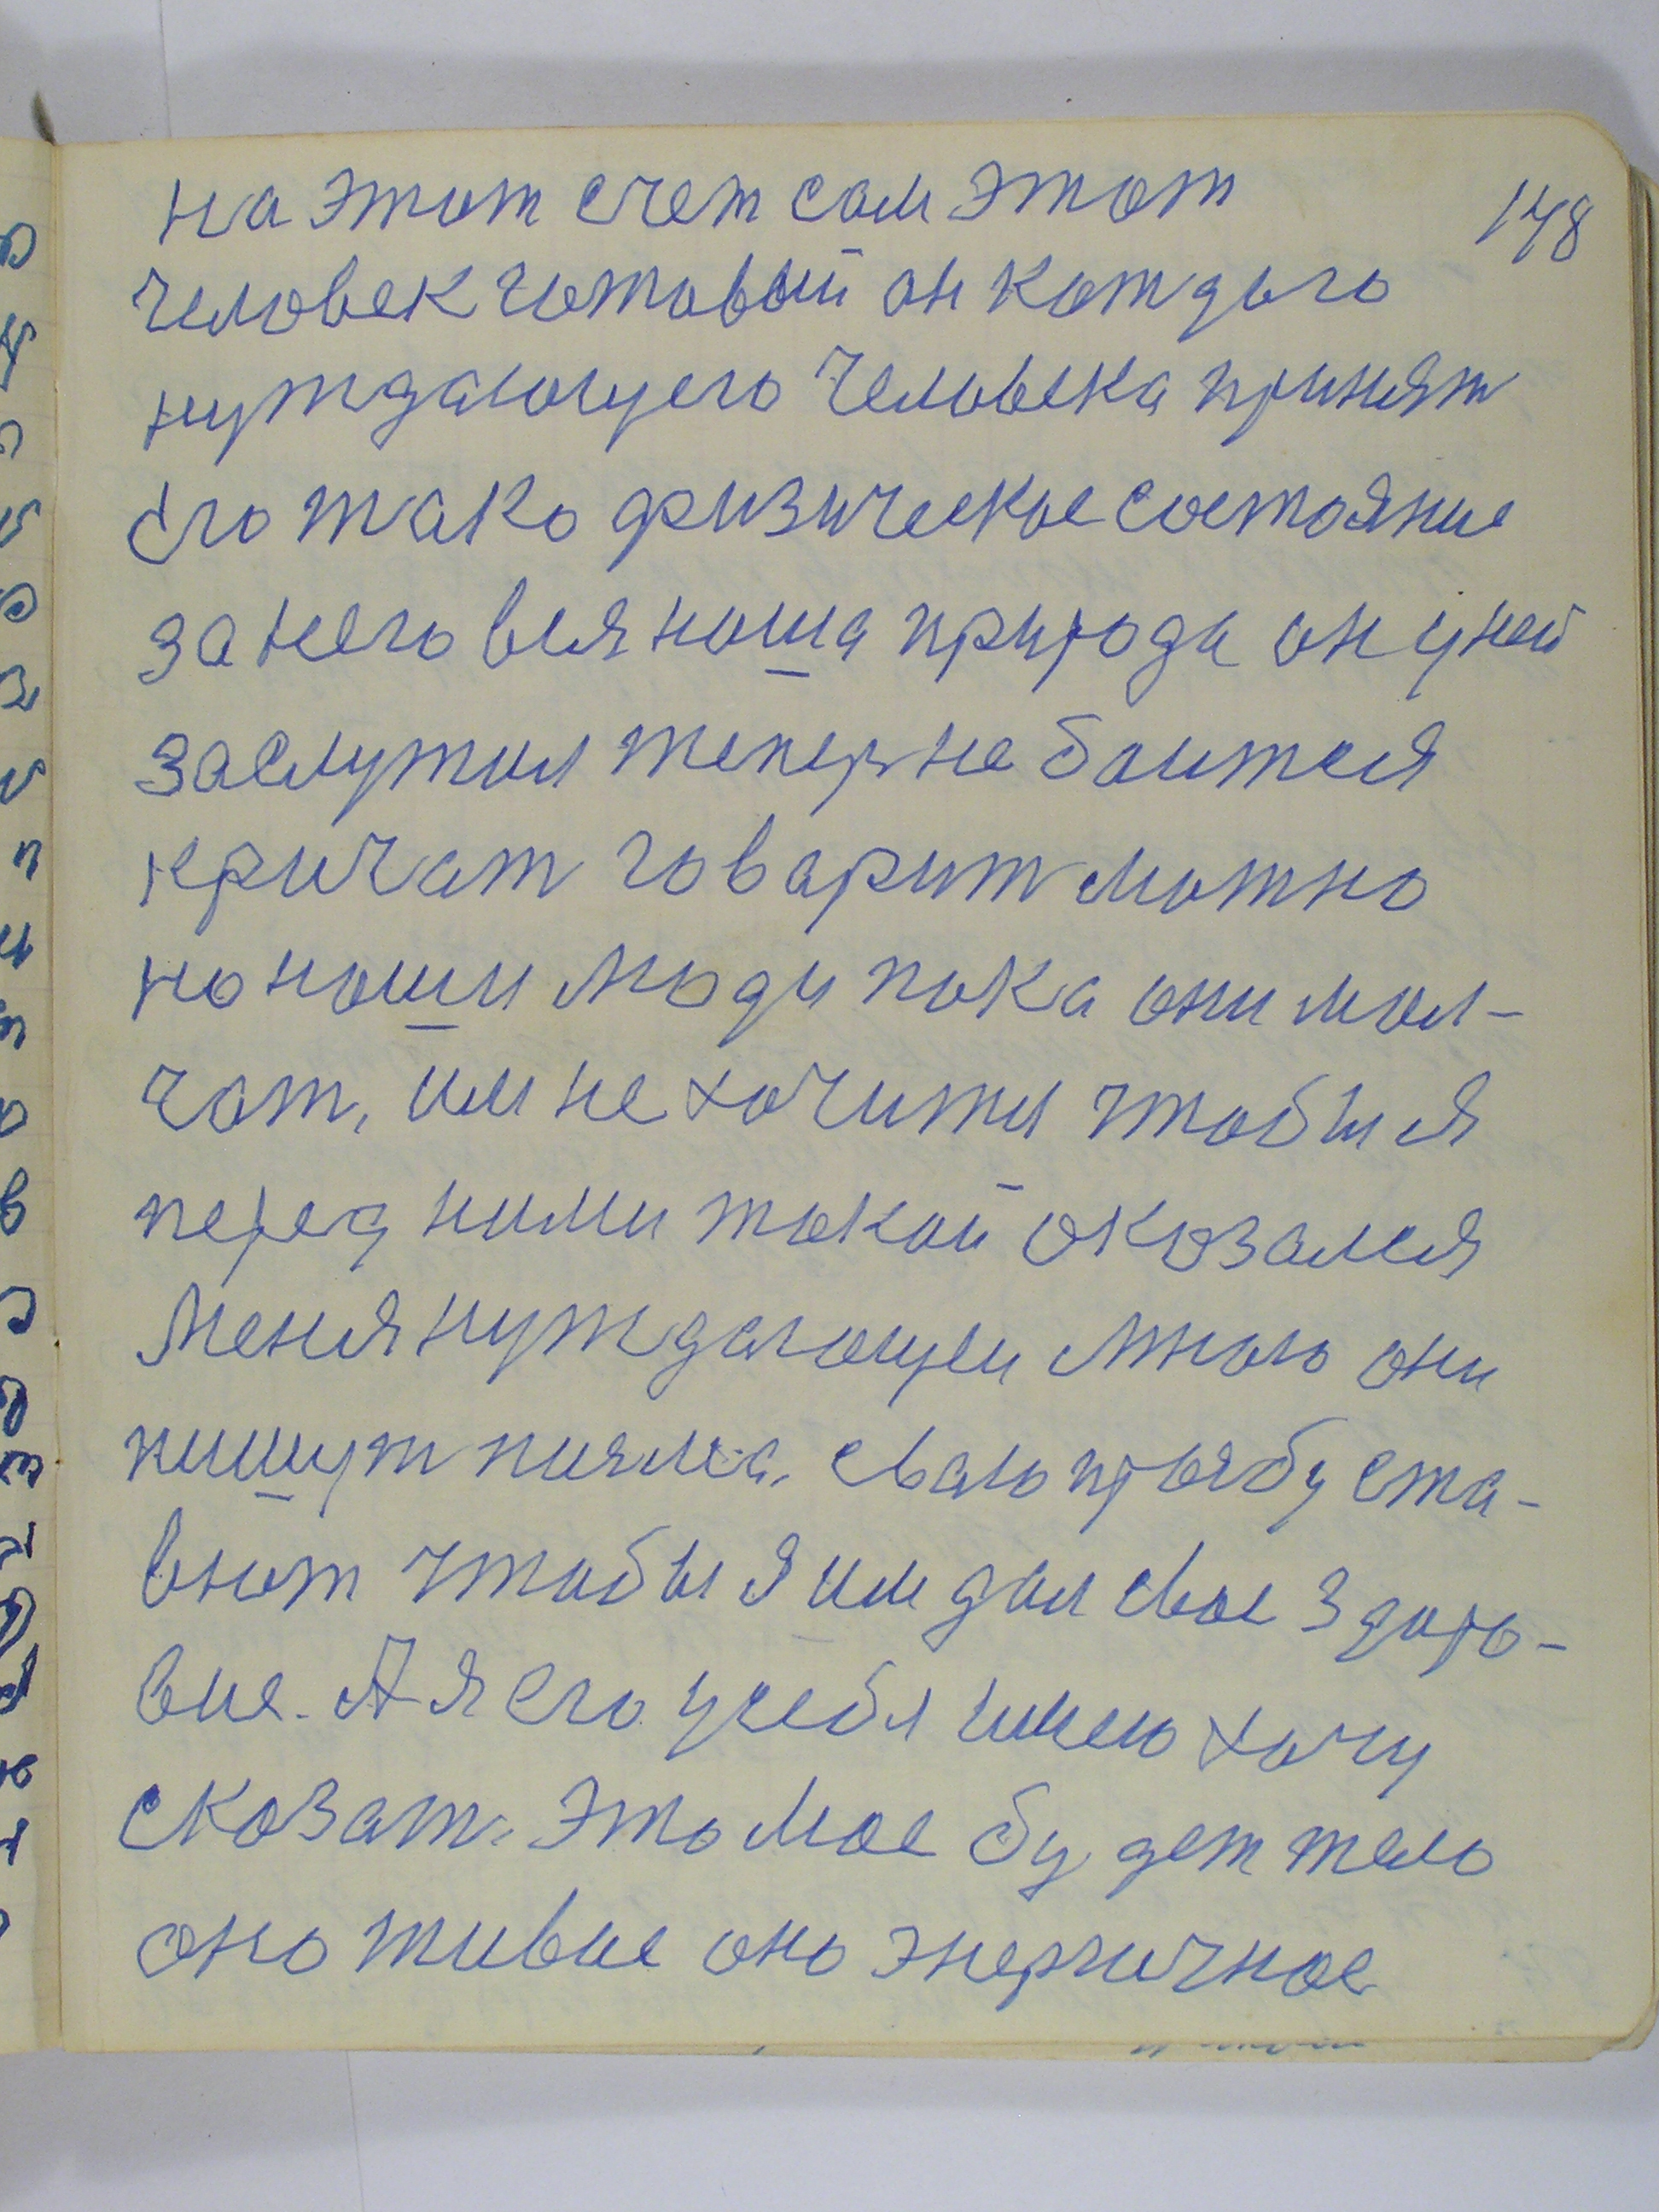 148
на этот счет сам этот
человек готовый он кождого
нуждающего человека принят
его тако физическое состояние
за него вся наша природа он у ней
заслужил теперь не боится
кричат говарит можно
но наши люди пока они мол-
чат, им не хочитя чтобы я
перед ними такой оказался
меня нуждающеи много они
пишут писма, сваю прозбу ста-
вют чтобы я им дал свое здоро-
вие. А я его у себя имею хочу
сказат. Это мое будет тело
оно живое оно энергичное